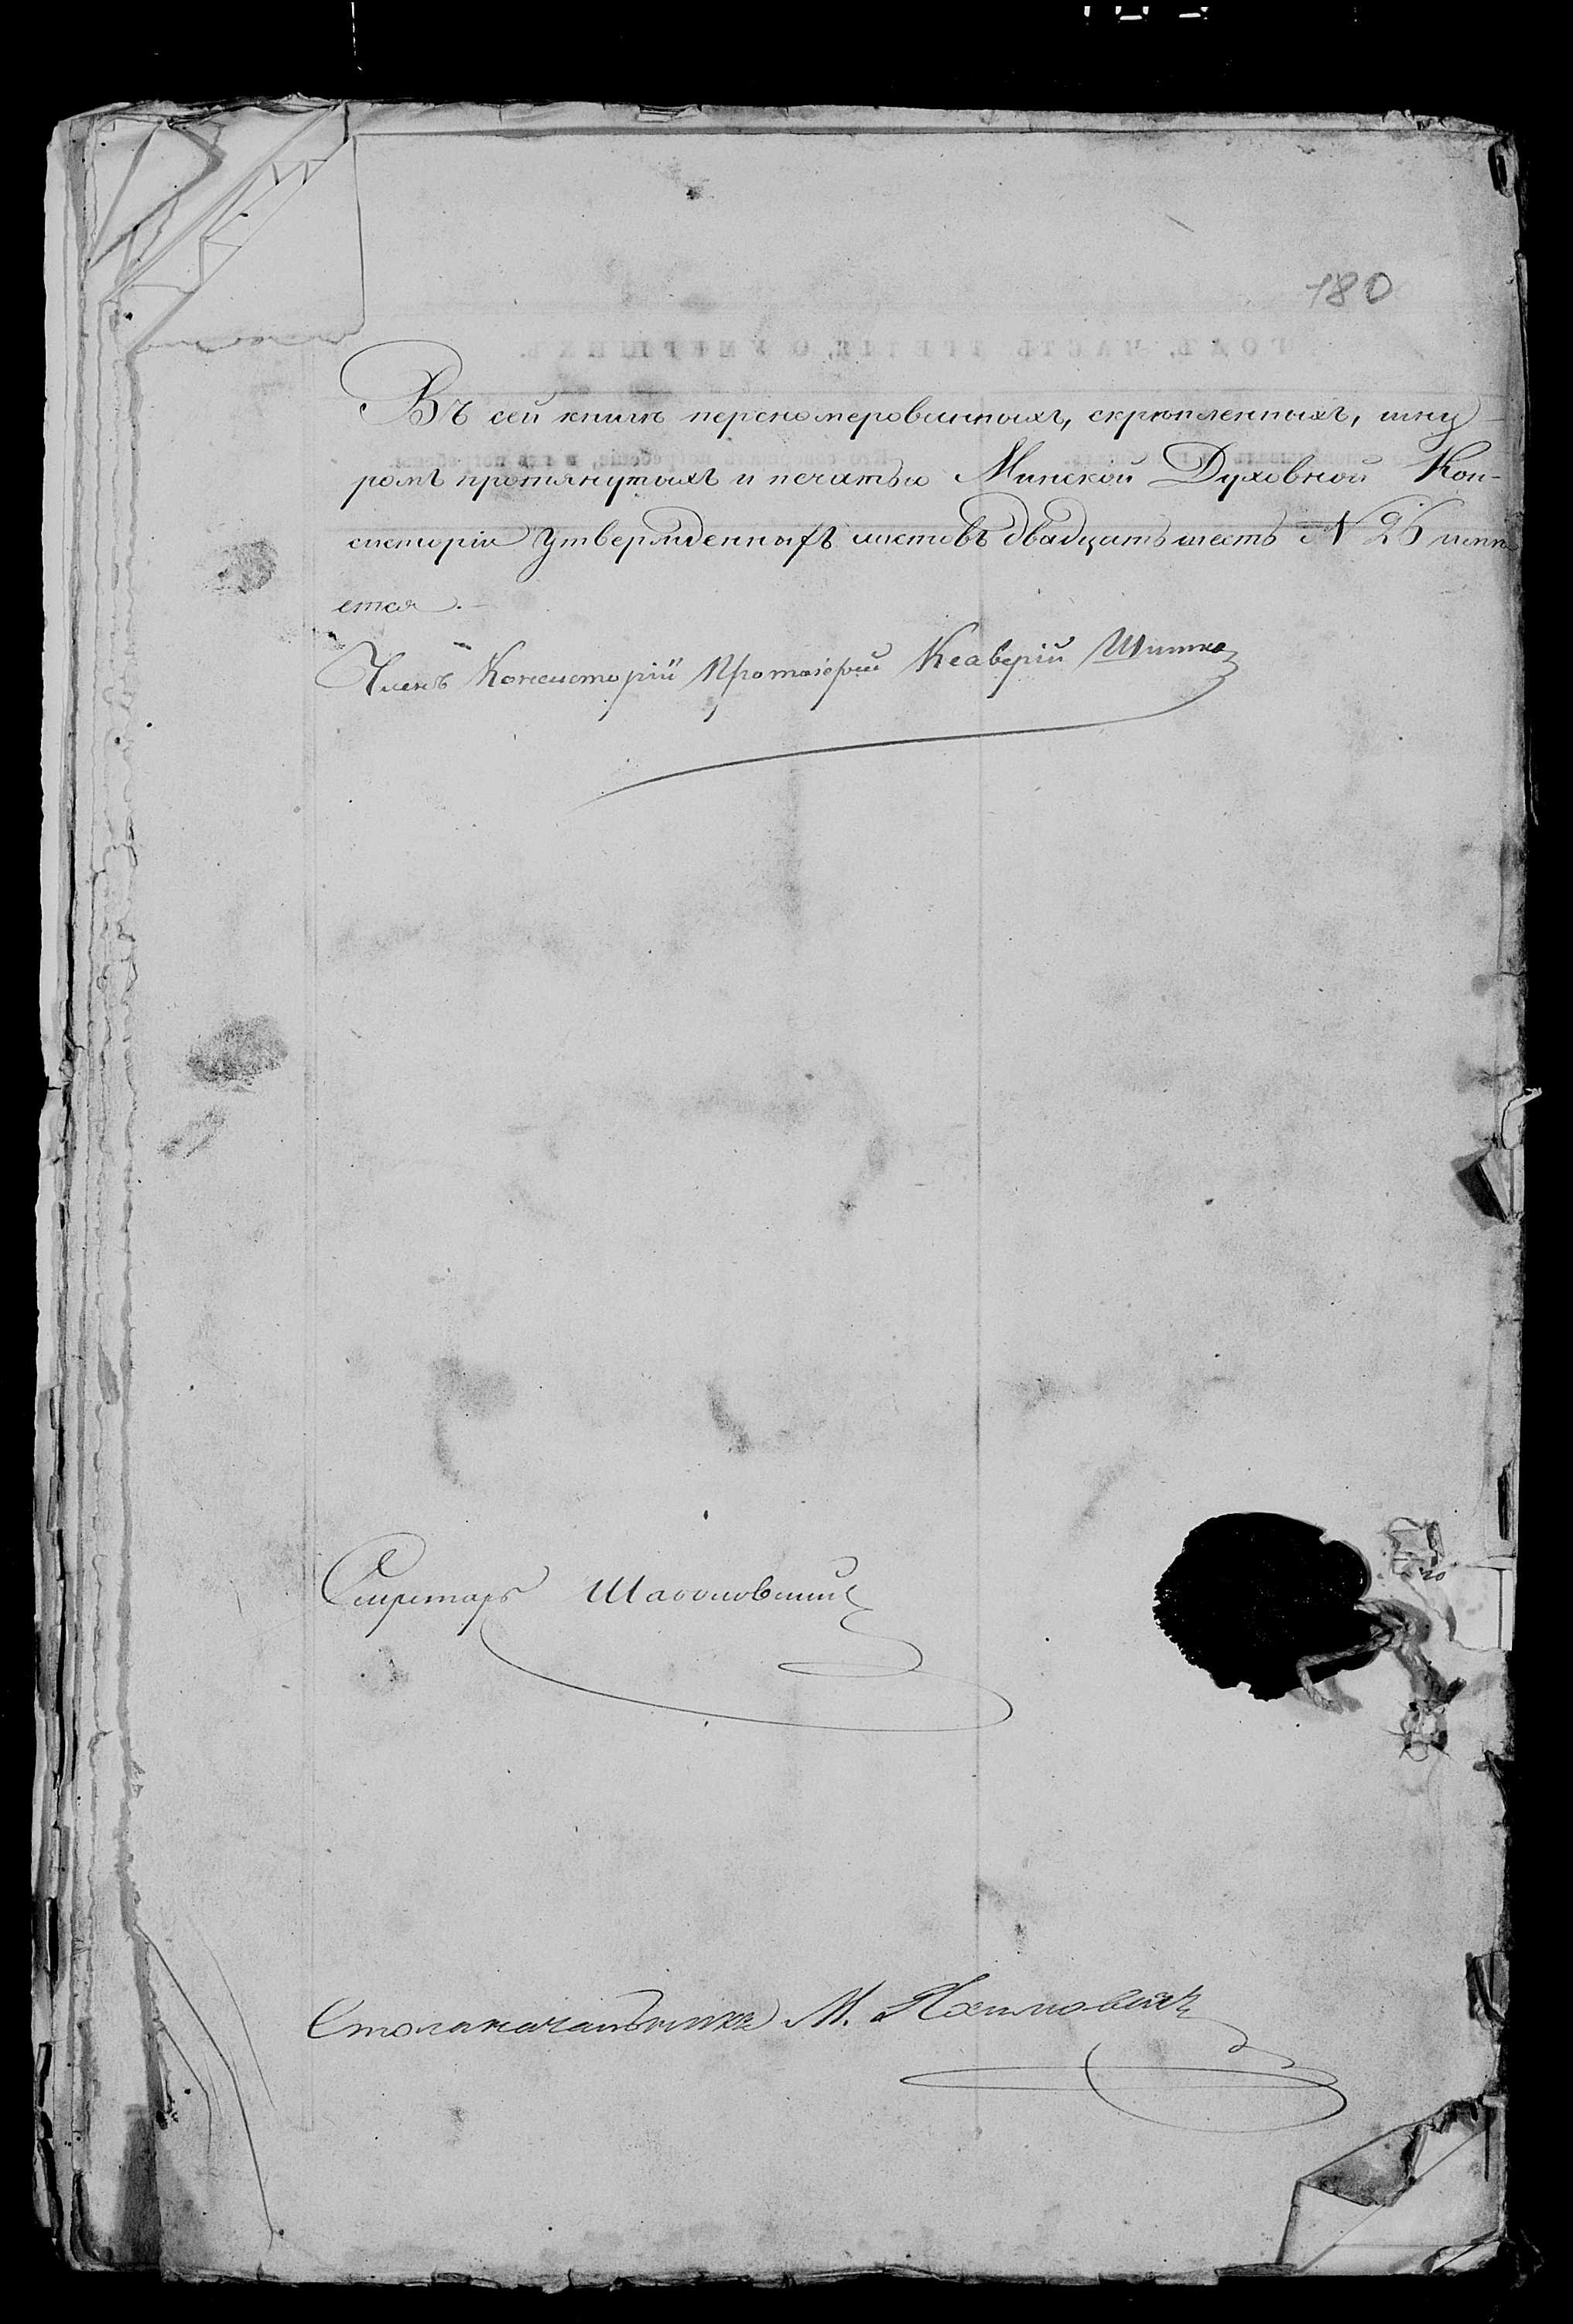 180
Въ сей книгѣ переномерованныхъ, скрѣпленныхъ, шну-
ромъ протянутыхъ и печатью Минской Духовной Кон-
систоріи утвержденныхъ листовъ двадцать шесть N 26 имѣ
ется.
Членъ Консисторіи Протоіерей Ксаверій
Секретарь
Столоначальникъ М.